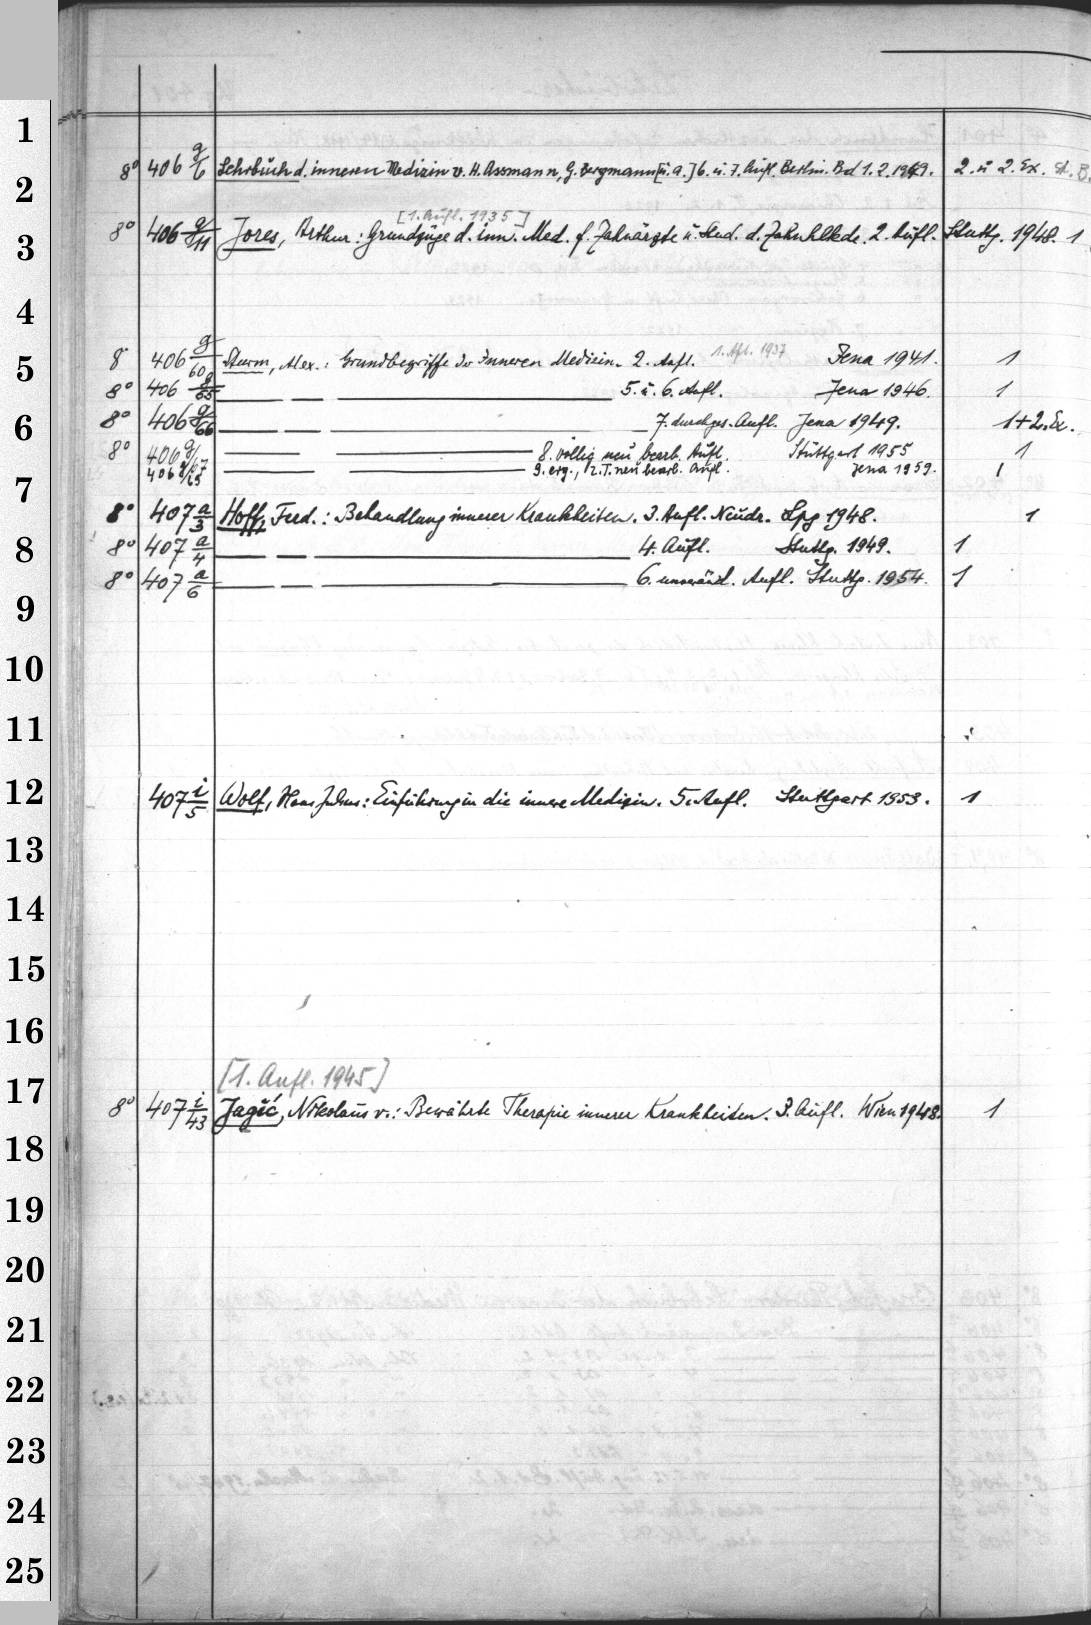 1
8° 406 g/6 Lehrbuch d. inneren Medizin v. H. Assmann, G. Bergmann [u. a.] 6. u. 7. Aufl. Berlin. Bd 1. 2. 1949. 2. u 2. Ex.
2
[1. Aufl. 1935]
8° 406 g/11 Jores, Arthur: Grundzüge d. inn. Med. f. Zahnärzte u. Stud. d. Zahnhlkde. 2. Aufl. Stuttg. 1948. 1
3
4
1. Afl. 1937
8° 406 g/60 Sturm, Alex.: Grundbegriffe der Inneren Medizin. 2. Aufl. Jena 1941. 1
5
8° 406 g/65 — — — 5. u. 6. Aufl. Jena 1946. 1
8° 406 g/66 — — — 7. durchges. Aufl. Jena 1949. 1 + 2. Ex.
6
8° 406 g/67 — — — 8. völlig neu bearb. Aufl. Stuttgart 1955 1
406 g/ — — — 9. erg., z.T. neu bearb. Aufl. Jena 1959. 1
7
8° 407 a/3 Hoff, Ferd.: Behandlung innerer Krankheiten. 3. Aufl. Neudr. Lpg 1948. 1
8
8° 407 a/4 — — — 4. Aufl. Stuttg. 1949. 1
8° 407 a/6 — — — 6. umgearb. Aufl. Stuttg. 1954. 1
9
10
11
12
407 i/5 Wolf, Hans Julius: Einführung in die innere Medizin. 5. Aufl. Stuttgart 1953. 1
13
14
15
16
[1. Aufl. 1945]
17
8° 407 i/43 Jagić, Nikolaus v.: Bewährte Therapie innerer Krankheiten. 3. Aufl. Wien 1948. 1
18
19
20
21
22
23
24
25